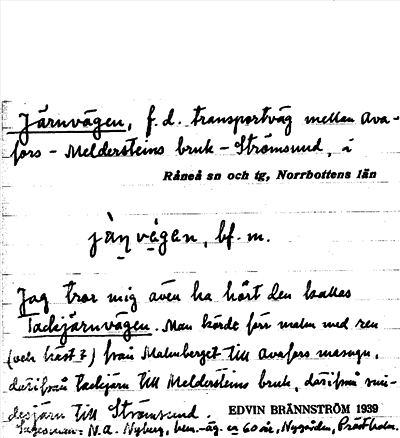 Järnvägen, f.d. transportväg mellan Ava-
fors - Meldersteins bruk - Strömsund, i
Råneå sn och tg, Norrbottens län
jà̀ṇvä̀gan, bf. m.
Jag tror mig även ha hört den kallas
Tackjärnvägen. Man körde förr malm med ren
(och häst?) från Malmberget till Avafors masugn,
därifrån tackjärn till Meldersteins bruk, därifrån smi-
desjärn till Strömsund.
EDVIN BRÄNNSTRÖM 1939
Sagesman: N.A. Nyberg, hem.-äg. ca 60 år, Nygården, Prästholm.